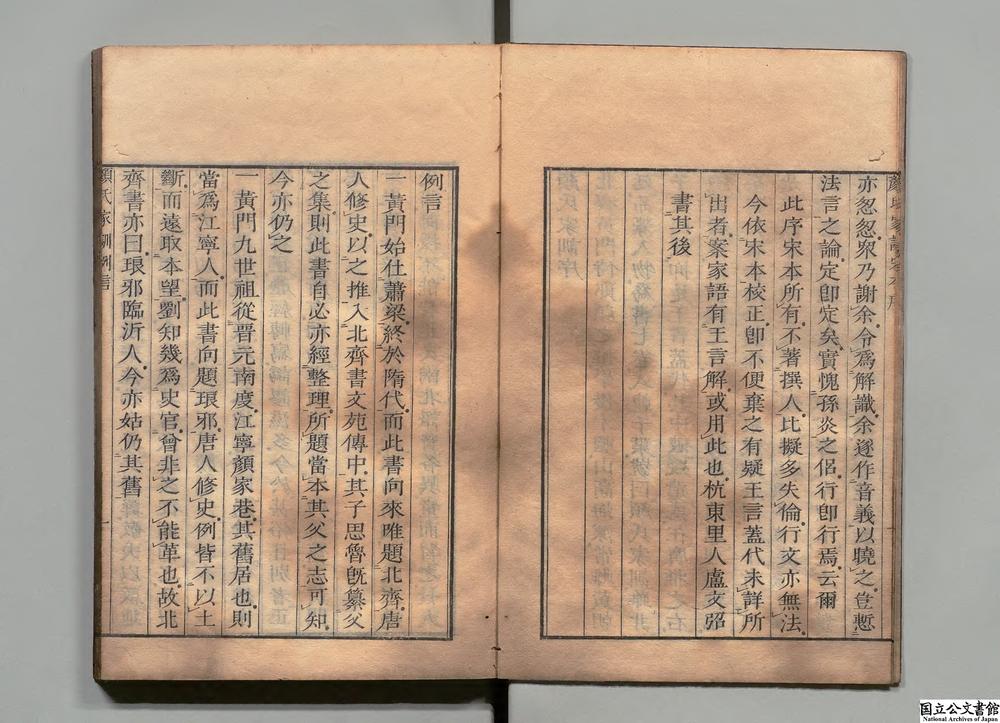 亦怱怱衆乃謝余令爲解識余遂作音義以曉之豈慙
法言之論定卽定矣實愧孫炎之侶行卽行焉云爾
此序宋本所有不著撰人比擬多失倫行文亦無法
今依宋本校正卽不便棄之有疑王言蓋代未詳所
出者案家語有王言解或用此也杭東里人盧文弨
書其後
例言
一黃門始仕蕭梁終於隋代而此書向來唯題北齊唐
人修史以之推入北齊書文苑傳中其子思魯旣纂父
之集則此書自必亦經整理所題當本其父之志可知
今亦仍之
一黃門九世祖從晉元南度江寧顏家巷其舊居也則
當爲江寧人而此書向題琅邪唐人修史例皆不以土
斷而遠取本望劉知幾爲史官曾非之不能革也故北
齊書亦曰琅邪臨沂人今亦姑仍其舊
顏氏家訓例言
一
国立公文書館
National Archives of Japan